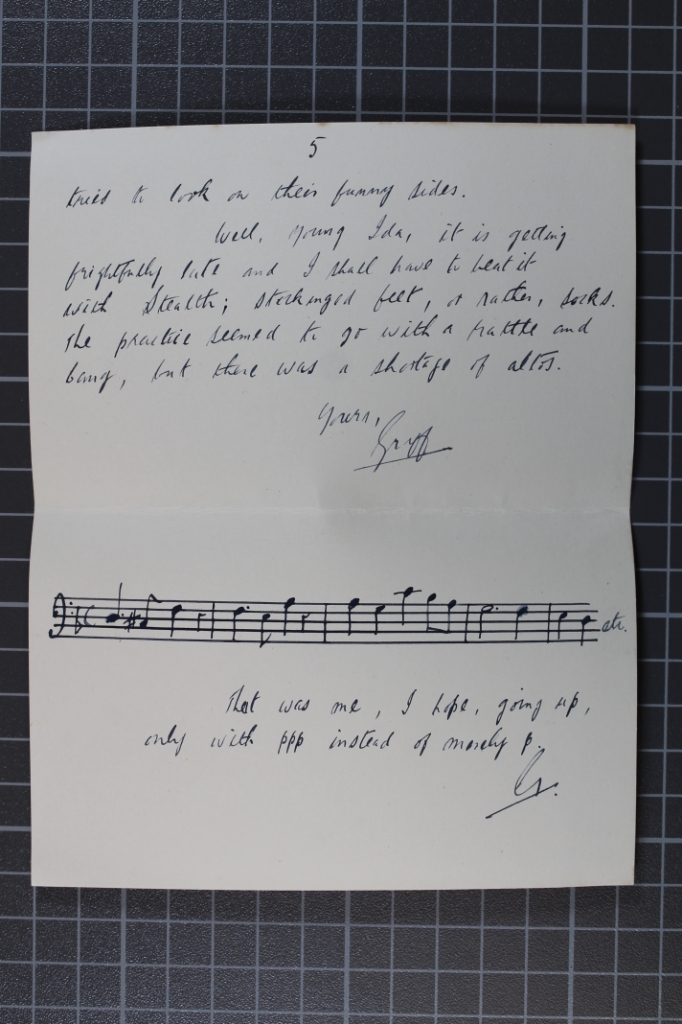 5
tried to look on their funny sides.
Well, young Ida, it is getting
frightfully late and I shall have to beat it
with stealth; stockinged feet, or rather, socks.
The practice seemed to go with a rattle and
bang, but there was a shortage of altos.
Yours,
Gryff
etc.
That was me, I hope, going up,
only with ppp instead of merely p.
G.